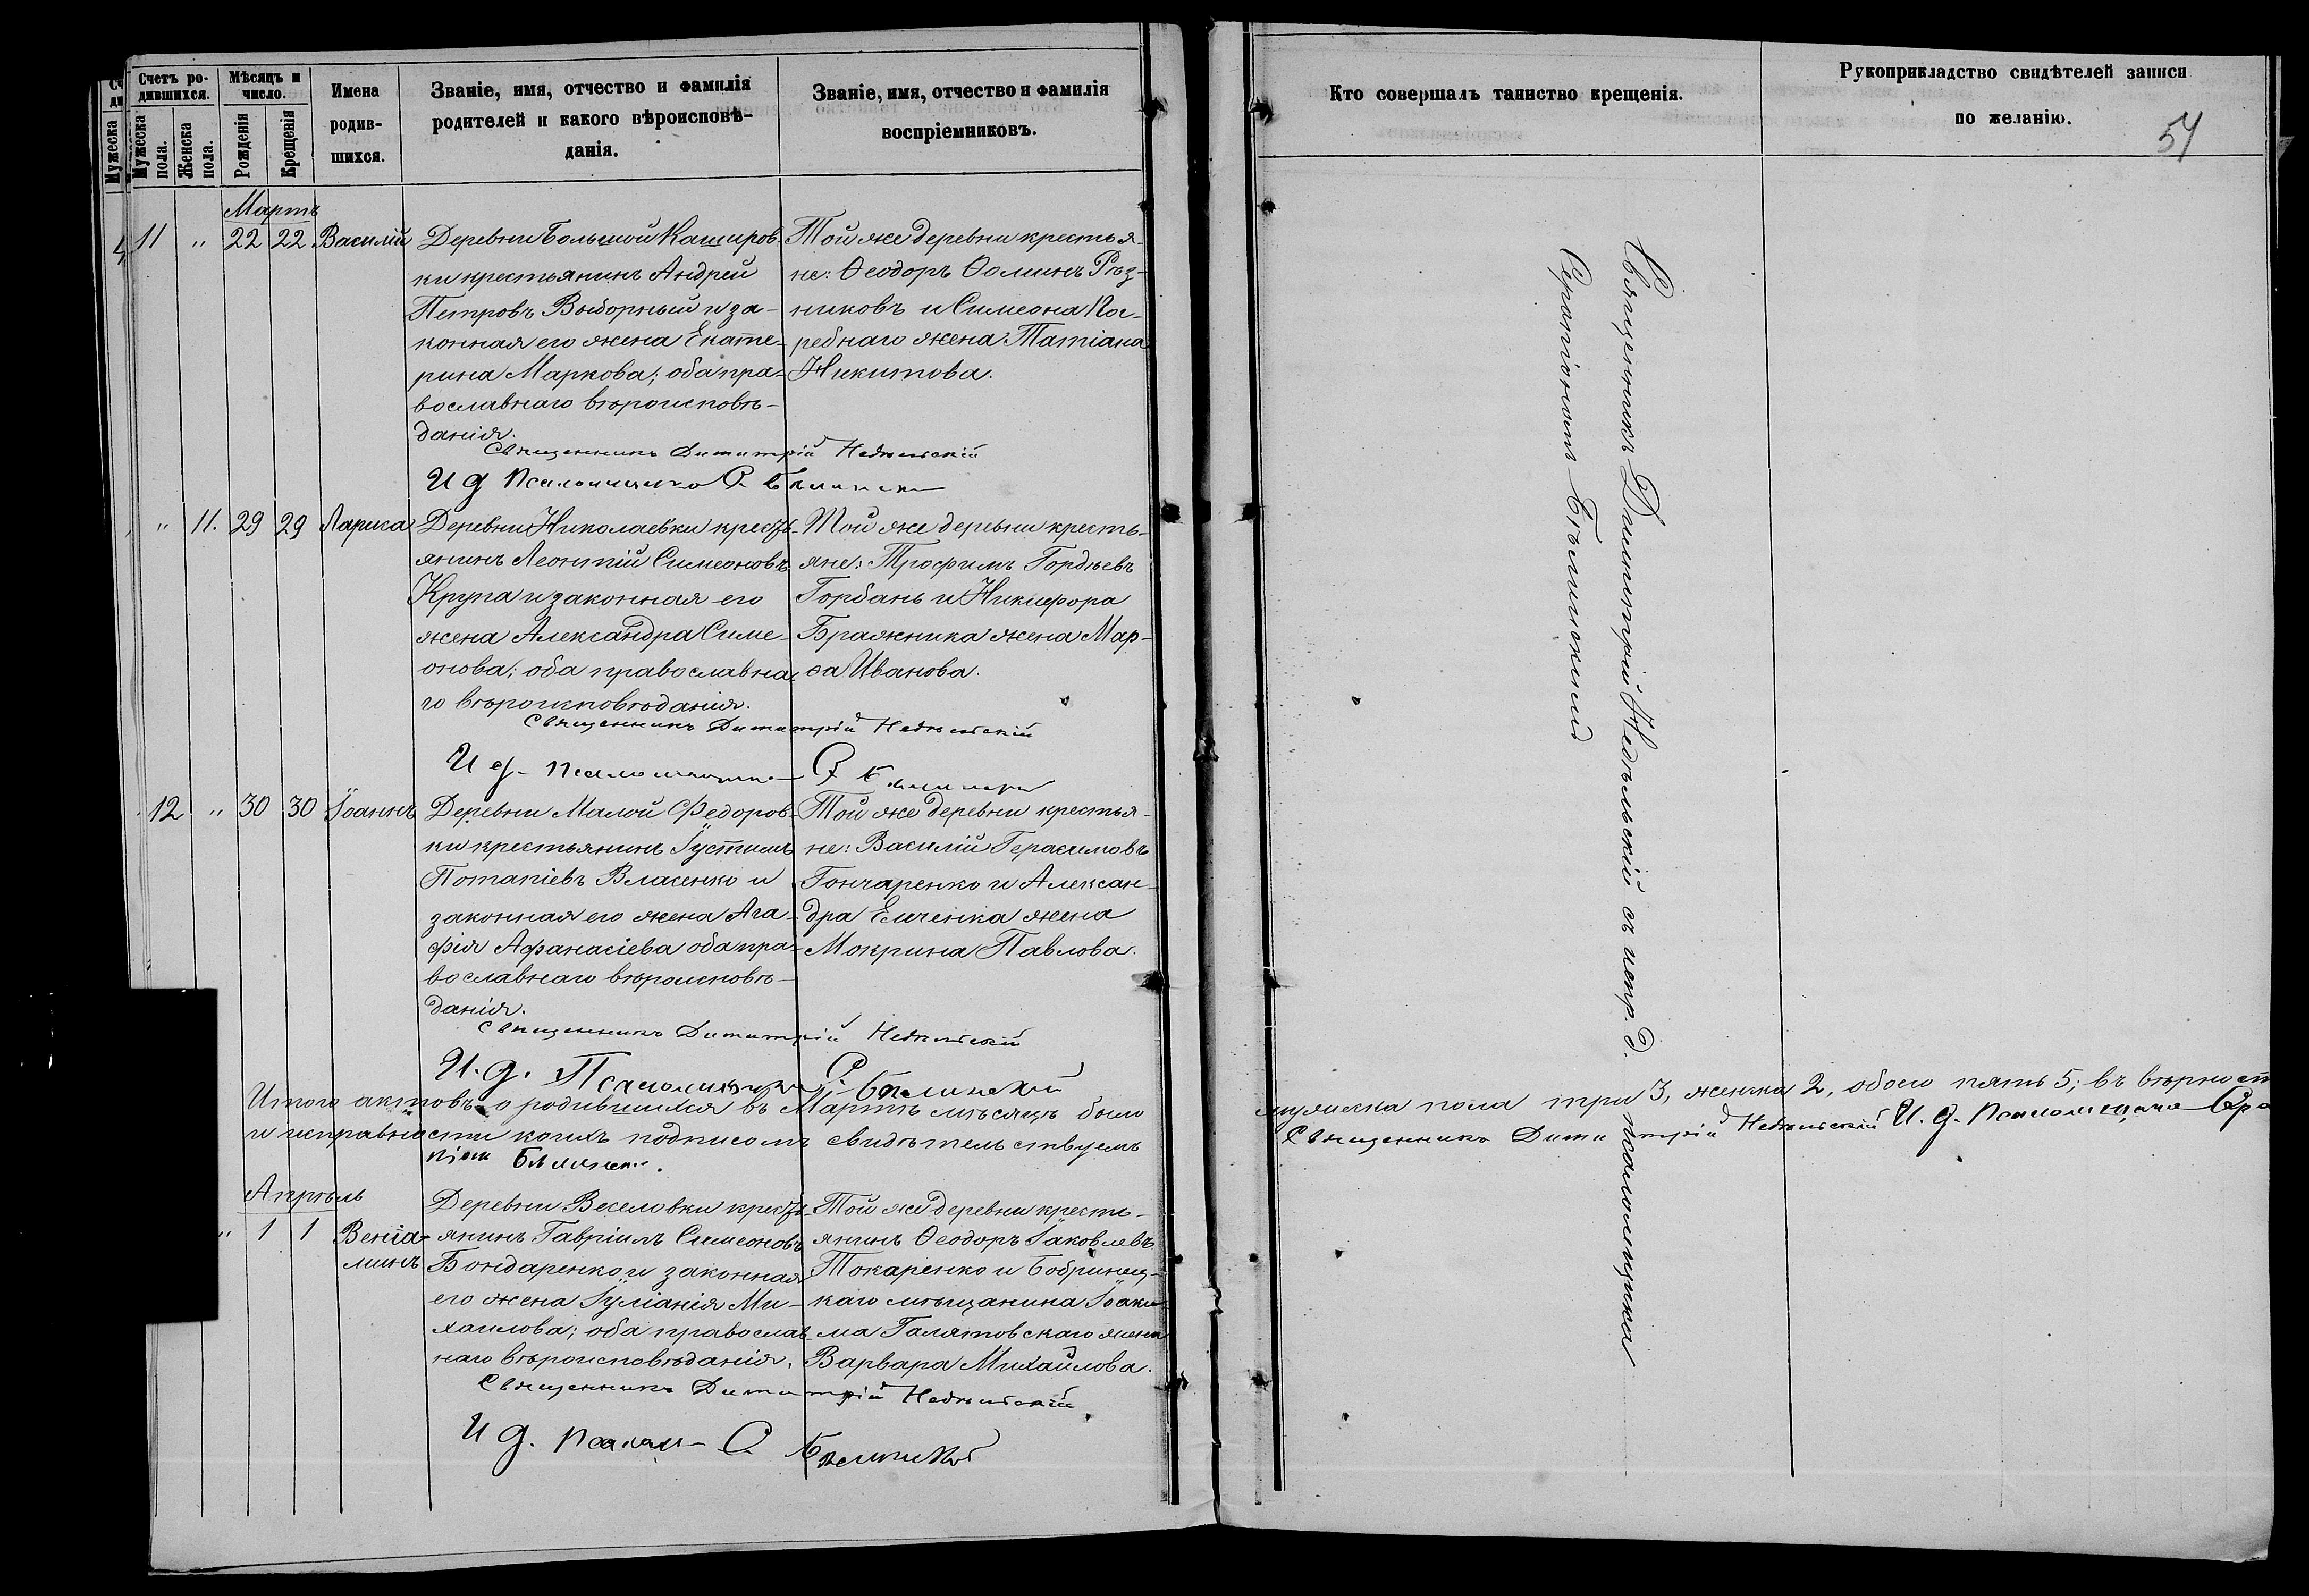 Счетъ ро-
дившихся.
Мужеска
пола.
Женска
пола.
Мѣсяцъ и
число.
Рожденія
Крещенія
Имена
родив-
шихся.
Званіе, имя, отчество и фамилія
родителей и какого вѣроисповѣ-
данія.
Званіе, имя, отчество и фамилія
воспріемниковъ.
Кто совершалъ таинство крещенія.
Рукоприкладство свидѣтелей записи
по желанію.
54
Мартъ
11 " 22 22 Василій
Деревни Большой Кашировъ-
ки крестьянинъ Андрей
Петровъ Выборный и за-
конная его жена Екате-
рина Маркова; оба пра-
вославнаго вѣроисповѣ-
данія.
Той же деревни крестья-
не: Ѳеодоръ Ѳоминъ Рѣз-
никовъ и Симеона Пог-
ребнаго жена Татіана
Никитова.
Священникъ Димитрій Недѣльскій
И д Псаломщика С. Бѣлинскій
" 11. 29 29 Лариса
Деревни Николаевки кресть-
янинъ Леонтій Симеоновъ
Крупа и законная его
жена Александра Симе-
онова; оба православна-
го вѣроисповѣданія.
Той же деревни кресть-
яне: Трофимъ Гордѣевъ
Горбань и Никифора
Бражника жена Мар-
ѳа Иванова.
Священникъ Димитрій Недѣльскій
И д. псаломщика С Бѣлинскій
12 " 30 30 Іоаннъ
Деревни Малой Федоров-
ки крестьянинъ Іустинъ
Потапіевъ Власенко и
законная его жена Ага-
фія Афанасіева оба пра-
вославнаго вѣроисповѣ-
данія.
Той же деревни крестья-
не: Василій Герасимовъ
Гончаренко и Алексан-
дра Емченка жена
Мокрина Павлова.
Священникъ Димитрій Недѣльскій
И. д. Псаломщика С. Бѣлинскій
Итого актовъ о родившихся въ Мартѣ мѣсяцѣ было мужеска пола три 3, женска 2, обоего пять 5; въ вѣрност
и исправности коихъ подписомъ свидѣтельствуемъ Священникъ Димитрій Недѣльскій И. д. Псаломщика Сера
піонъ Бѣлинскій.
Апрѣль
" 1 1 Веніа-
минъ
Деревни Веселовки кресть-
янинъ Гавріилъ Симеоновъ
Бондаренко и законная
его жена Іуліанія Ми-
хаилова; оба православ-
наго вѣроисповѣданія.
Той же деревни кресть-
янинъ Ѳеодоръ Іаковлевъ
Токаренко и Бобринец-
каго мѣщанина Іоаки-
ма Галятовскаго жена
Варвара Михайлова.
Священникъ Димитрій Недѣльскій
И д. псалом- С. Бѣлинскій
Священникъ Димитрій Недѣльскій съ испр. д. псаломщика
Серапіономъ Бѣлинскимъ